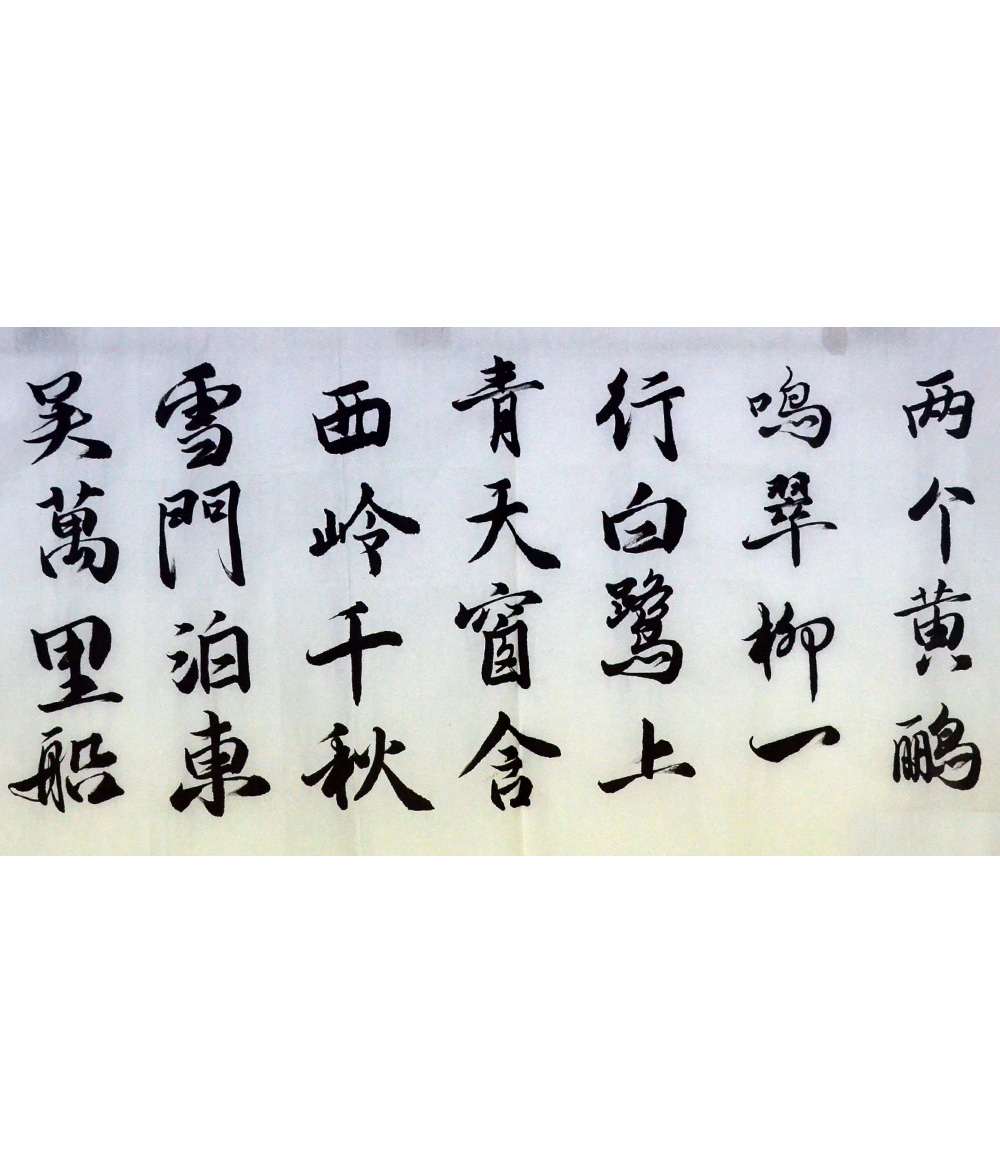 两个黄鹂
鳴翠柳一
行白鷺上
青天窗含
西岭千秋
雪門泊東
吴萬里船